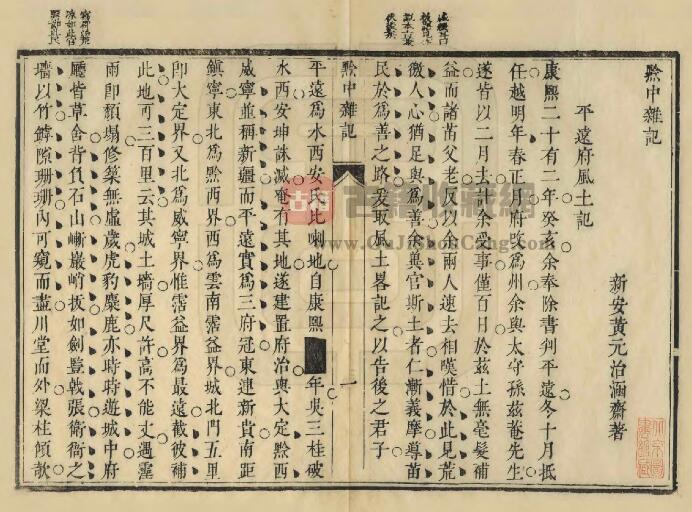 黔中雜記
平遠府風土記
新安黃元治涵齋著
康熙二十有二年癸亥余奉除書判平遠冬十月抵
任越明年春正月府改為州余與太守孫茲菴先生
遂皆以二月去計余受事僅百日於茲土無毫髮補
益而諸苗父老反以余兩人速去相嘆惜於此見荒
徼人心猶足與為善余冀官斯土者仁漸義摩尊苗
民於為善之路爰取風土畧記之以告後之君子
黔中雜記
一
平遠為水西安氏比喇地自康熙
年吳三桂破
水西安坤誅滅奄有其地遂建置府治與大定黔西
威寧並稱新疆而平遠實為三府冠東連新貴南距
鎮寧東北為黔西界西為雲南霑益界城北門五里
即大定界又北為威寧界惟霑益界為最遠截彼補
此地可三百里云其城土墻厚尺許高不能丈遇霪
雨即頹塌修築無虛歲虎豹麋鹿亦時時遊城中府
廳皆草舍背負石山嶄巖峭拔如劍豎戟張衛衙之
墻以竹罅隙珊珊內可窺而盡川堂而外梁柱傾欹
www.GuJiShouCang.com